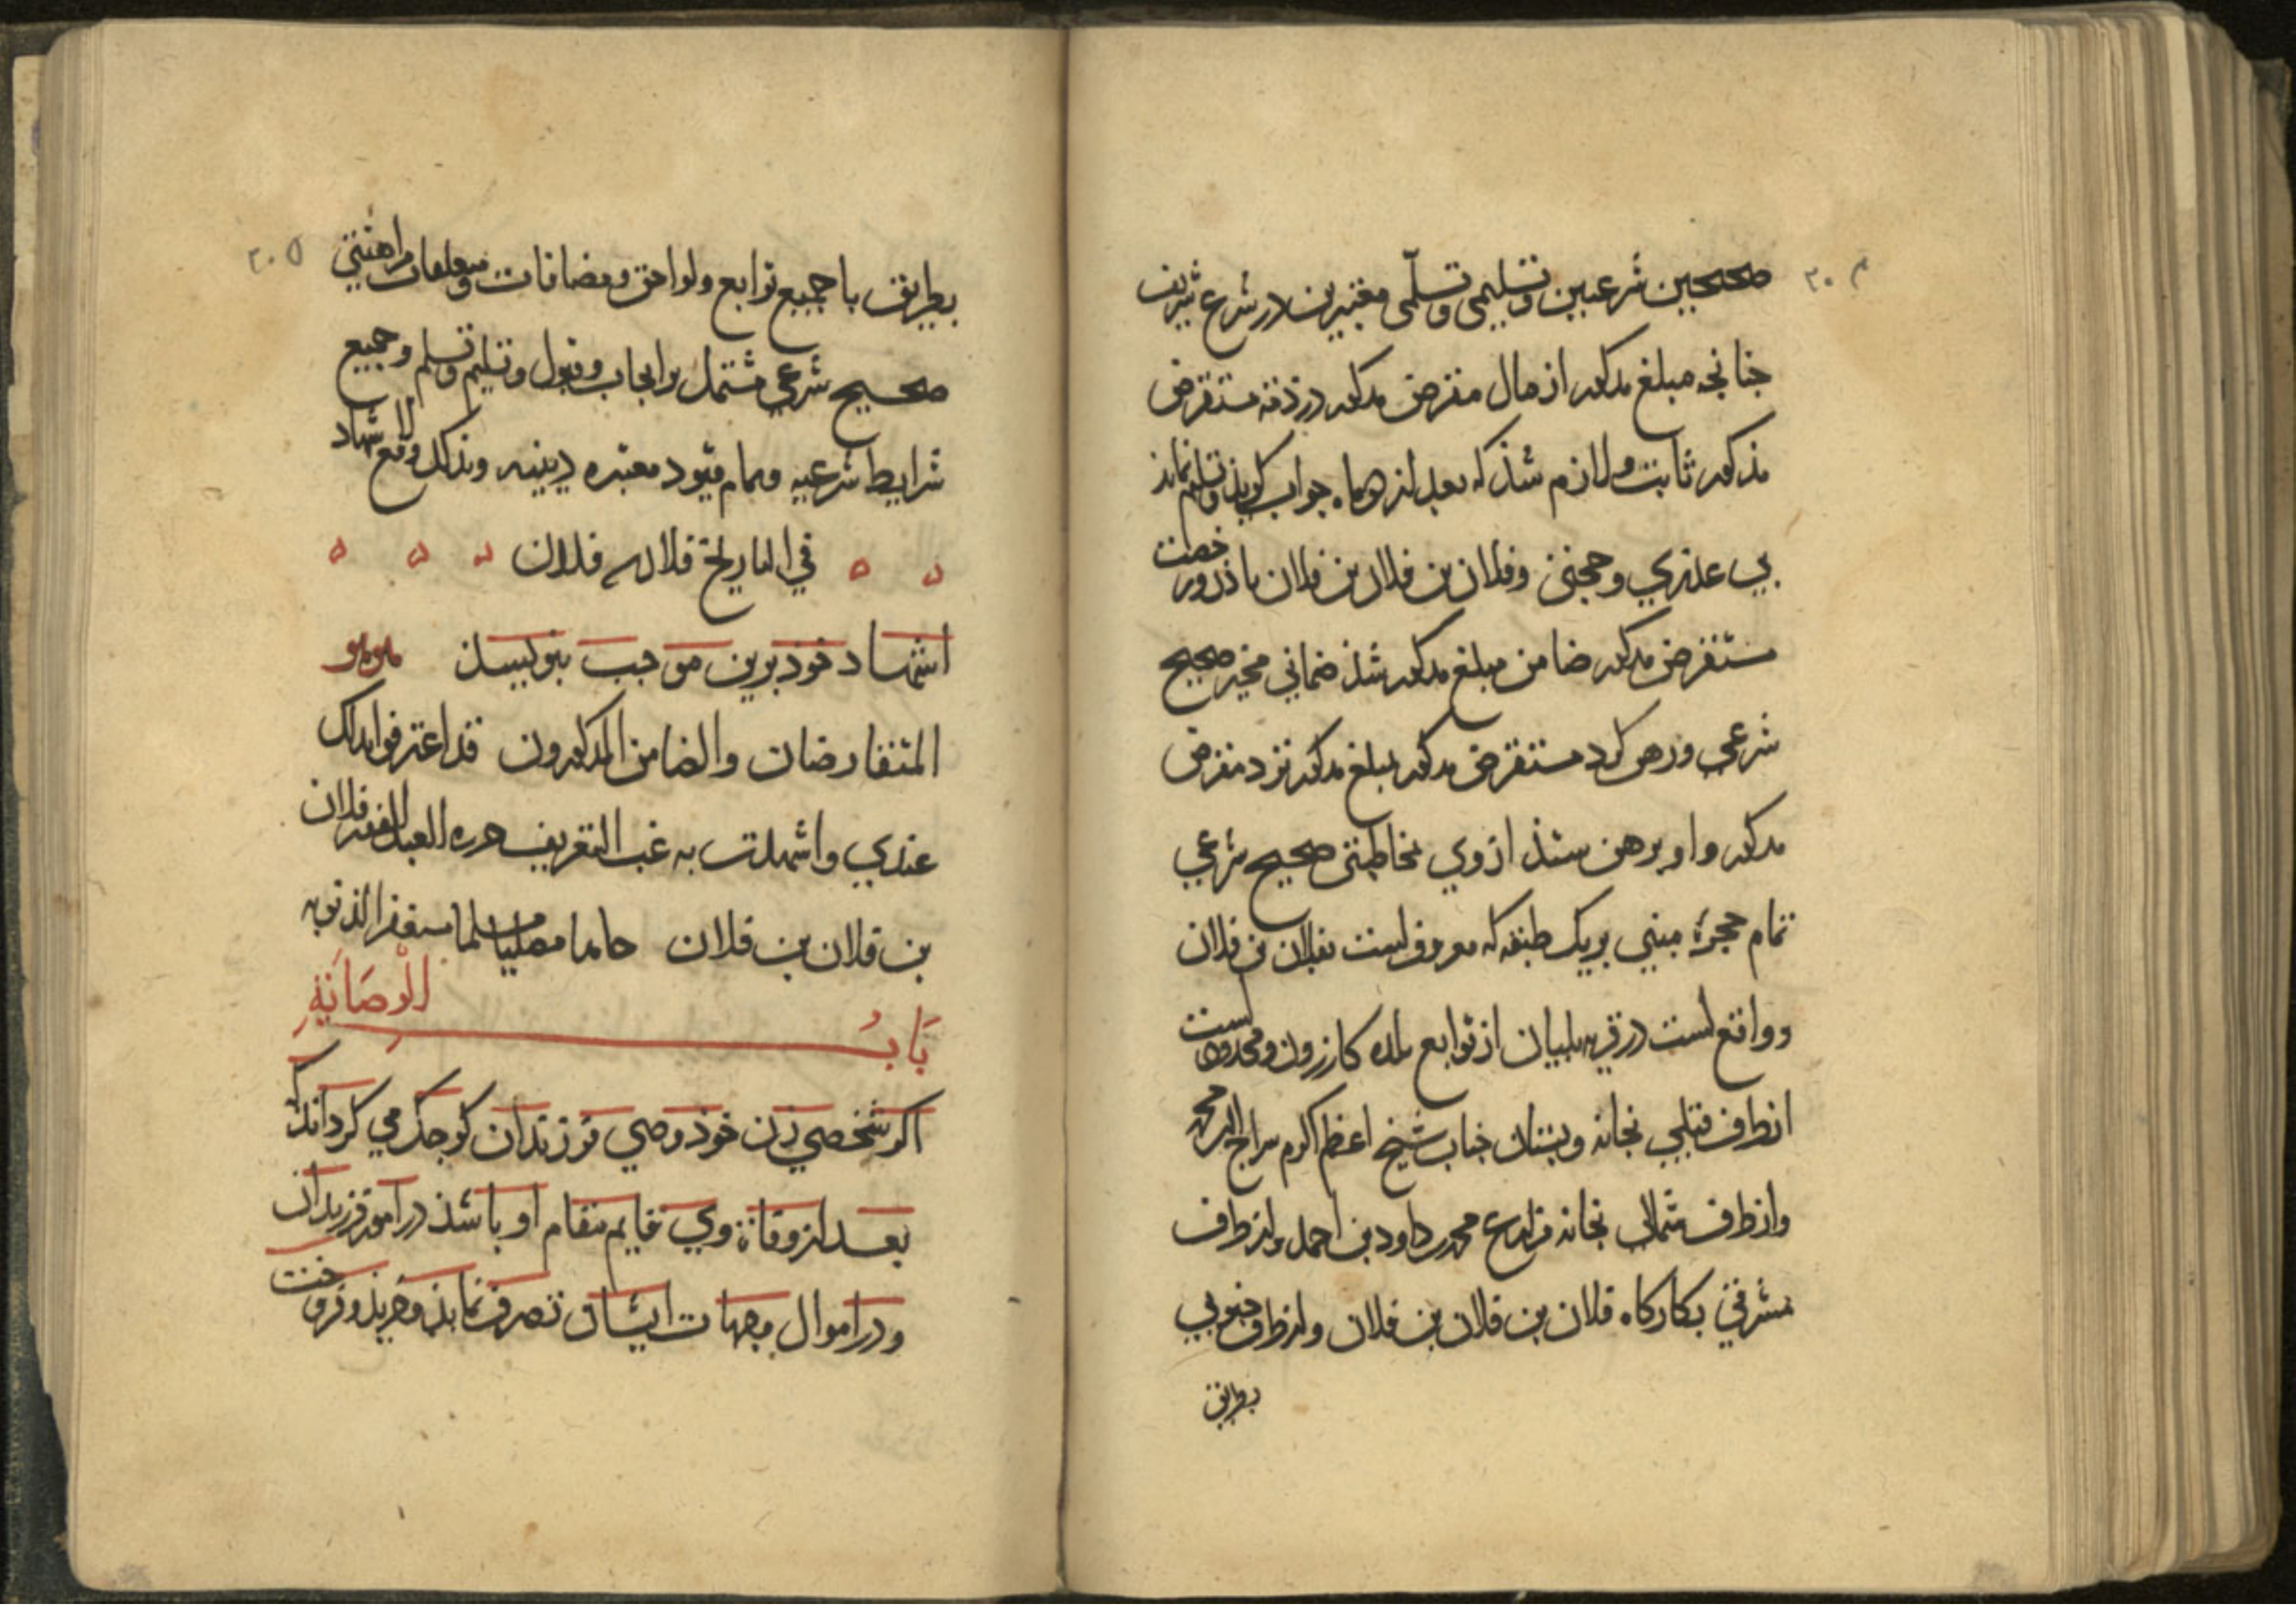 ٢٠٤
صحیحین شرعیین وتسلیمی وتسلّمی معتبرین در شرع شریف
جنانجه مبلغ مذکور از مال مقرض مذکور در ذمّه مستقرض
مذکور ثابت ولازم شذ که بعد از دو ماه جواب کوید وتسلیم نماید
بی عذری وحجتی وفلان بن فلان بن فلان باذن ورخصت
مستقرض مذکور ضامن مبلغ مذکور شذ ضمانی مخیر صحیح
شرعی ورهن کرد مستقرض مذکور بمبلغ مذکور نزد مقرض
مذکور واو برهن ستذ از وی مخاطبتی صحیح شرعی
تمام حجرهٔ مبنی بریک طبقه که معروفست بفلان بن فلان
وواقع است در قریه بلیان از توابع بلده کازرون ومحدودست
از طرف قبلی بخانه وبستان جناب شیخ اعظم اکرم سراج الدین محمد
واز طرف شمالی بخانه مزارع محمد بن داود بن احمد واز طرف
مشرقی بکارکاه فلان بن فلان بن فلان واز طرف جنوبی
بطریق
٢٠٥
بطریق با جمیع توابع ولواحق ومضافات ومتعلقات مراهنتی
صحیح شرعی مشتمل بر ایجاب وقبول وتسلیم وتسلم وجمیع
شرایط شرعیه وتمام قیود معتبره دینیه وبذلک وقع الاشهاد
فی التاریخ فلان فلان
اشهاد خود برین موجب بنویسد
المتقارضان والضامن المذکورون قد اعترفوا بذلک
عندی واشهدت به غب التعریف حرره العبد الفقیر فلان
بن فلان بن فلان حامدا مصلیا مسلما مستغفرا لذنوبه
بَابُ الْوِصَایَةِ
اکر شخصی زن خوذ وصی فرزندان کوجک می کرداند که
بعد از وفاة وی قایم مقام او باشذ در امور فرزندان
ودر اموال وجهات ایشان تصرف نماید وخرید وفروخت